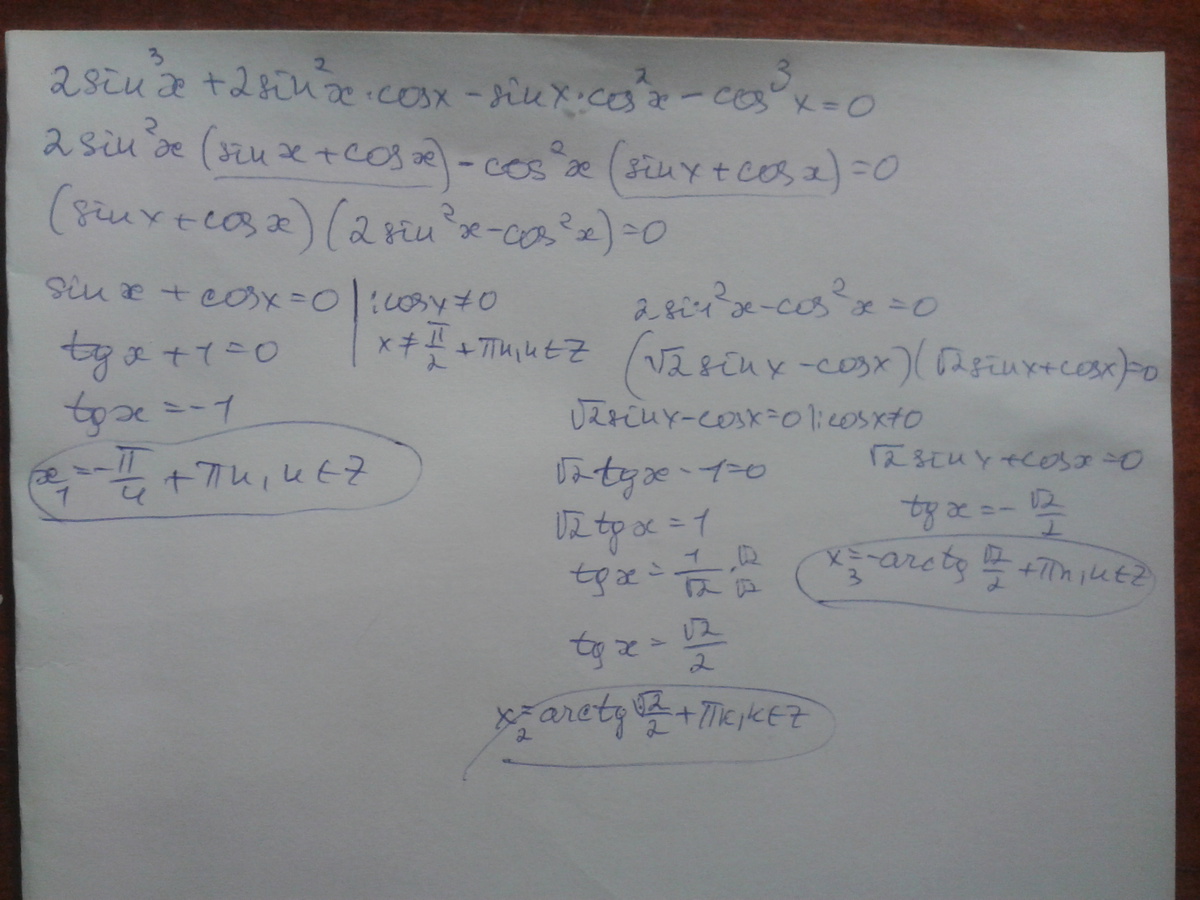 2sin³x + 2sin²x·cosx - sinx·cos²x - cos³x = 0
2sin²x (sinx + cosx) - cos²x (sinx + cosx) = 0
(sinx + cosx)(2sin²x - cos²x) = 0
sinx + cosx = 0 | : cosx ≠ 0
tgx + 1 = 0
x ≠ π/2 + πn, n ∈ Z
tgx = -1
x₁ = -π/4 + πn, n ∈ Z
2sin²x - cos²x = 0
(√2sinx - cosx)(√2sinx + cosx) = 0
√2sinx - cosx = 0 |: cosx ≠ 0
√2tgx - 1 = 0
√2tgx = 1
tgx = 1/√2 · √2/√2
tgx = √2/2
x₂ = arctg √2/2 + πk, k ∈ Z
√2sinx + cosx = 0
tgx = -√2/2
x₃ = -arctg √2/2 + πn, n ∈ Z